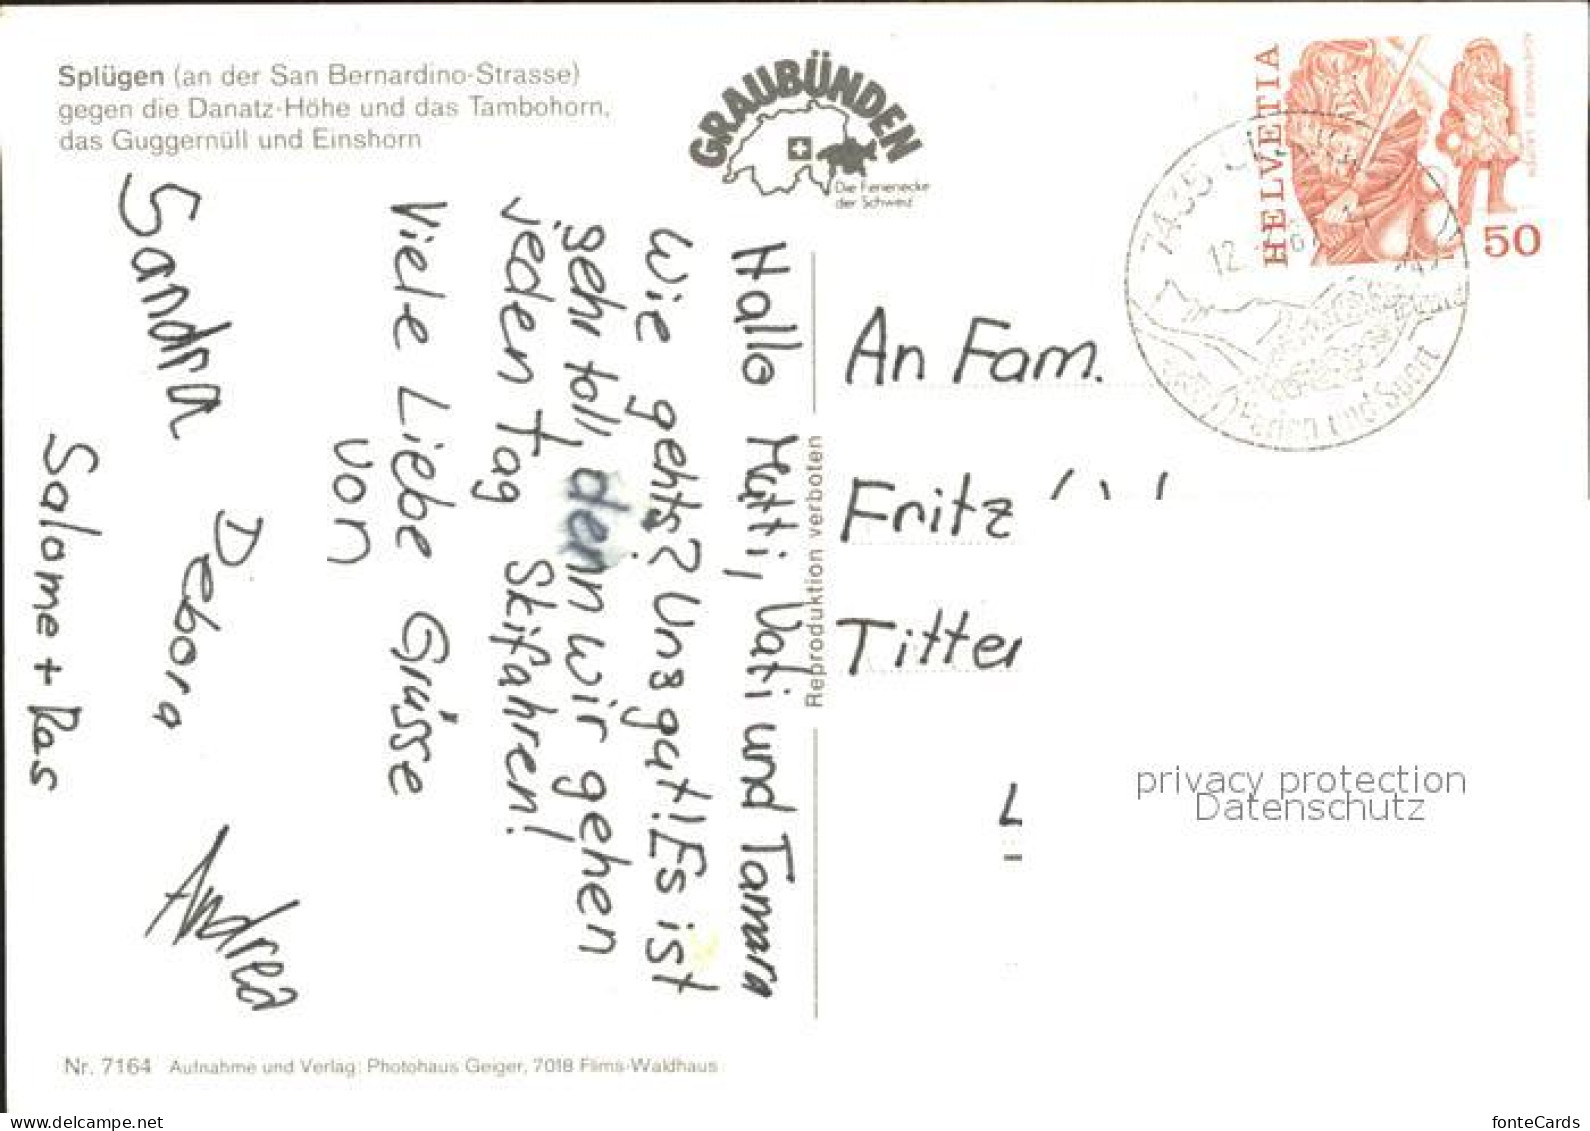 Splügen (an der San Bernardino-Strasse)
gegen die Danatz-Höhe und das Tambohorn,
das Guggernüll und Einshorn
GRAUBÜNDEN
Die Ferienecke
der Schweiz
HELVETIA
50
7435
12
Ferien und Sport
Hallo Mutti, Vati und Tamara
Wie gehts? Uns gut! Es ist
sehr toll, denn wir gehen
jeden Tag Skifahren!
Viele Liebe Grüsse
von
Sandra
Debora
Andrea
Salome + Ras
Reproduktion verboten
An Fam.
Fritz
Titter
L
privacy protection
Datenschutz
Nr. 7164 Aufnahme und Verlag: Photohaus Geiger, 7018 Flims-Waldhaus
www.delcampe.net
fonteCards